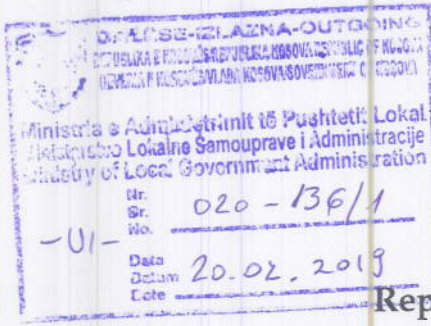 DALËSE-IZLAZNA-OUTGOING
REPUBLIKA E KOSOVËS/REPUBLIKA KOSOVA/REPUBLIC OF KOSOVO
QEVERIA E KOSOVËS/VLADA KOSOVA/GOVERNMENT OF KOSOVA
Ministria e Administrimit të Pushtetit Lokal
Ministarstvo Lokalne Samouprave i Administracije
Ministry of Local Government Administration
Nr.
Br.
No.
020-136/1
-UI-
Data
Datum
Date
20.02.2019
Rep